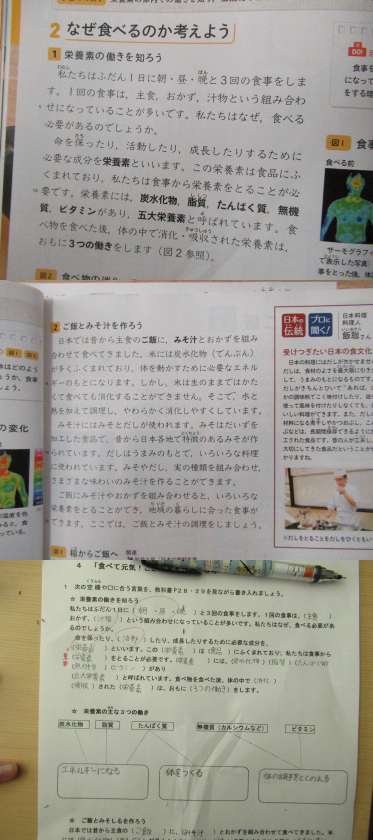 2 なぜ食べるのか考えよう
1 栄養素の働きを知ろう
私たちはふだん1日に朝・昼・晩と3回の食事をしま
す。1回の食事は、主食、おかず、汁物という組み合わ
せになっていることが多いです。私たちはなぜ、食べる
必要があるのでしょうか。
命を保ったり、活動したり、成長したりするために
必要な成分を栄養素といいます。この栄養素は食品にふ
くまれており、私たちは食事から栄養素をとることが必
要です。栄養素には、炭水化物、脂質、たんぱく質、無機
質、ビタミンがあり、五大栄養素と呼ばれています。食
べ物を食べた後、体の中で消化・吸収された栄養素は、
おもに3つの働きをします(図2参照)。
図1
食べる前
図2
2 ご飯とみそ汁を作ろう
日本では昔から主食のご飯に、みそ汁とおかずを組み
合わせて食べてきました。米には炭水化物(でんぷん)
が多くふくまれており、体を動かすために必要なエネル
ギーのもとになります。しかし、米は生のままではかた
くて食べても消化することができません。そこで、水と
熱を加えて調理し、やわらかく消化しやすくしています。
みそ汁にはみそとだしが使われます。みそはだいずを
加工した食品で、昔から日本各地で特徴のあるみそが作
られています。だしはうまみのもとで、いろいろな料理
に使われています。みそやだし、実の種類を組み合わせ、
さまざまな味わいのみそ汁を作ることができます。
ご飯にみそ汁やおかずを組み合わせると、いろいろな
栄養をとることができ、地域の暮らしに合った食事が
できます。ここでは、ご飯とみそ汁の調理をしましょう。
日本の伝統
プロに聞く!
日本料理
料理人
飯聡さん
受けつぎたい日本の食文化
稲からご飯へ
4 「食べて元気!
1 次の空欄や口に合う言葉を、教科書P28・29を見ながら書き入れましょう。
☆ 栄養素の働きを知ろう
私たちはふだん1日に(朝・昼・晩)と3回の食事をします。1回の食事は、(主食)
おかず、(汁物)という組み合わせになっていることが多いです。私たちはなぜ、食べる必要があ
るのでしょうか。
命を保ったり、(活動)したり、成長したりするために必要な成分を、
(栄養素)といいます。この(栄養素)は(食品)にふくまれており、私たちは食事から
(栄養素)をとることが必要です。(栄養素)には、(炭水化物)(脂質)(たんぱく質)
(無機質)(ビタミン)があり
(五大栄養素)と呼ばれています。食べ物を食べた後、体の中で(消化)
(吸収)された(栄養素)は、おもに(3つの働き)をします。
☆ 栄養素の主な3つの働き
炭水化物 脂質 たんぱく質 無機質(カルシウムなど) ビタミン
エネルギーになる
体をつくる
体の調子をととのえる
☆ ご飯とみそしるを作ろう
日本では昔から主食の(ご飯)に、(みそ汁)とおかずを組み合わせて食べてきました。米